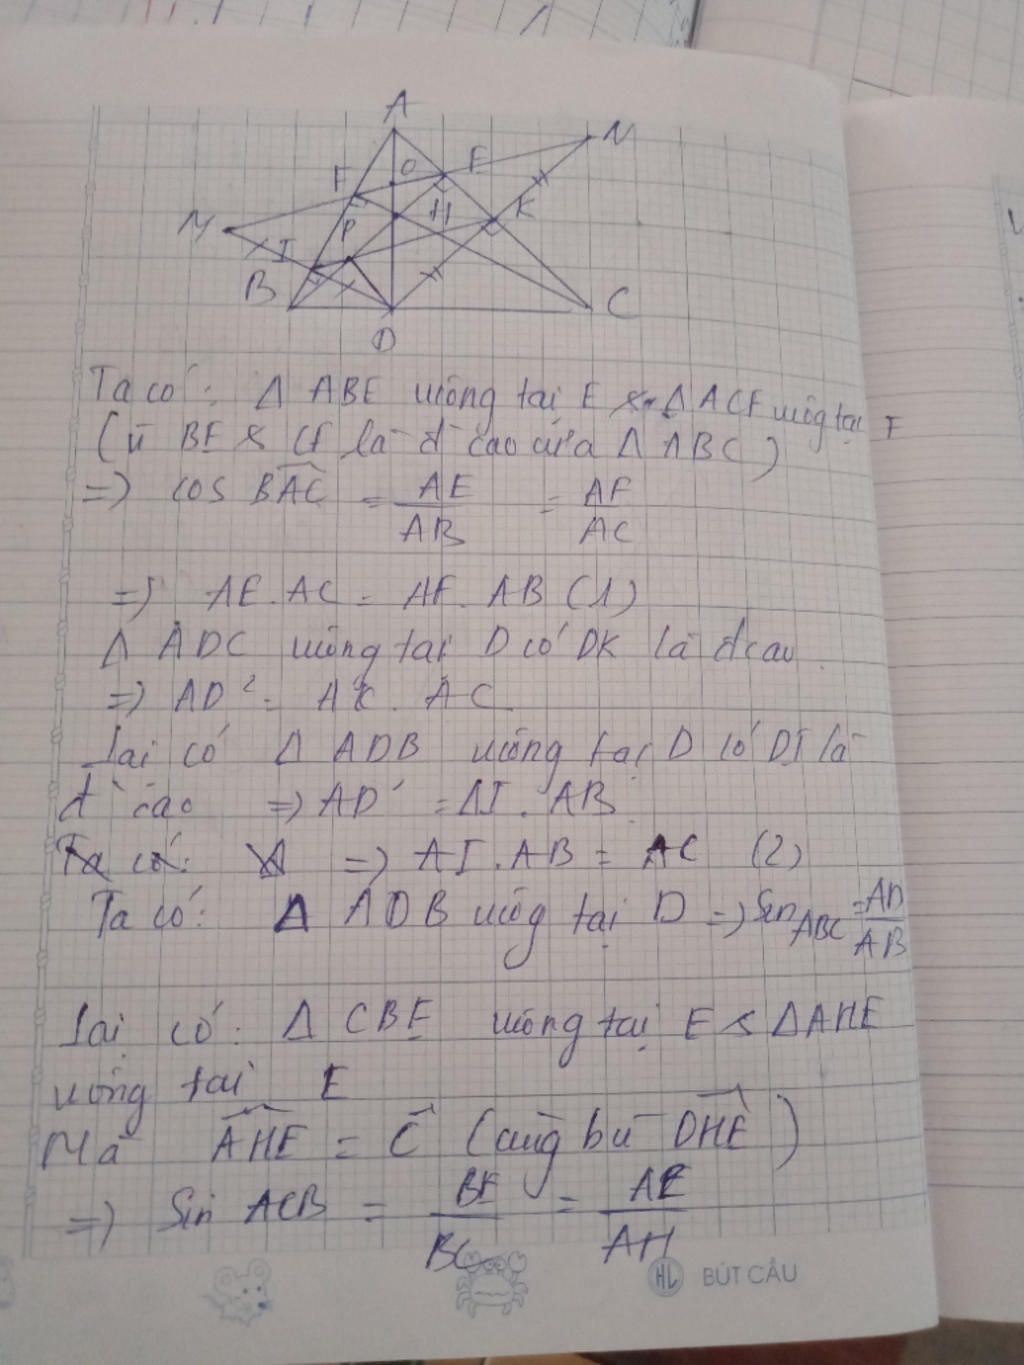 A
N
F
O
E
M
I
P
H
K
B
C
D
Ta có: Δ ABE vuông tại E & Δ ACF vuông tại F
(vì BE & CF là đ cao của Δ ABC)
=> cos BAC = AE/AB = AF/AC
=> AE.AC = AF.AB (1)
Δ ADC vuông tại D có DK là đ cao
=> AD² = AK.AC
Lại có Δ ADB vuông tại D có DI là
đ cao => AD² = AI.AB
Ta có: => AI.AB = AC (2)
Ta có: Δ ADB vuông tại D => Sin ABC = AD/AB
Lại có: Δ CBE vuông tại E & Δ AHE
vuông tại E
Mà AHE = C (cùng bù DHE)
=> Sin ACB = BE/BC = AE/AH
HL BÚT CÂU